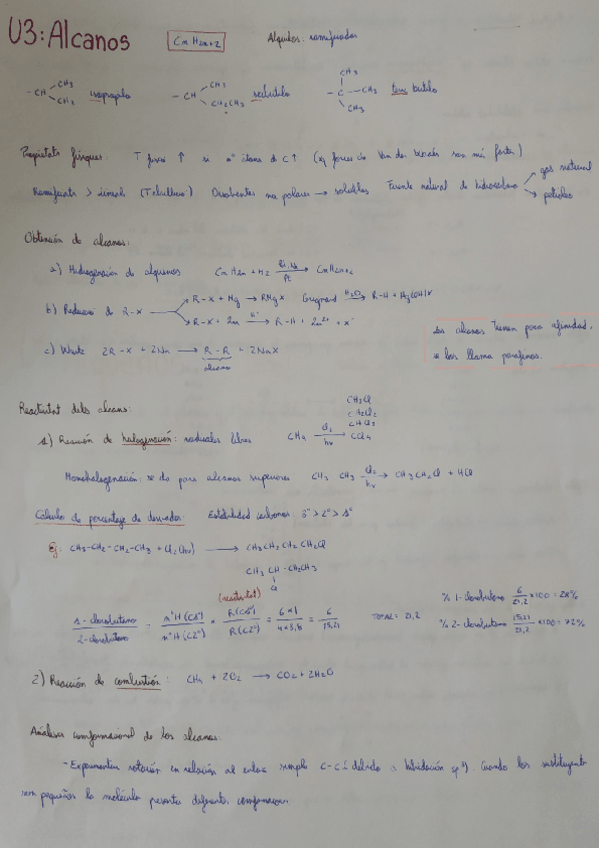 U3: Alcanos
CnH2n+2
Alquilos: ramificados
- CH CH3 CH3 isopropilo
- CH CH3 CH2CH3 secbutilo
CH3 - C - CH3 CH3 terc butilo
Propietats físiques: T fusió ↑ si nº àtoms d C ↑ (xq forces de Van der Waals son més fortes)
Ramificats > lineals (T ebullició) Disolventes no polares → solubles Fuente natural de hidrocarburos gas natural
petróleo
Obtención de alcanos:
a) Hidrogenación de alquenos CnH2n + H2 → Pt CnH2n+2
b) Reducción de R-X R-X + Mg → RMgX Grignard H2O → R-H +
R-X + Zn H+ → R-H + Zn2+ + X-
c) Wurtz 2R-X + 2Na → R-R + 2NaX
alcano
Los alcanos tienen poca afinidad,
se los llama parafinas.
Reactivitat dels alcans:
1) Reacción de halogenación: radicales libres CH4 Cl2 → hν CH3Cl
CH2Cl2
CHCl3
CCl4
Monohalogenación: se da para alcanos superiores CH3 CH3 Cl2 → hν CH3CH2Cl + HCl
Cálculo de porcentaje de derivados: Estabilidad carbonos: 3º > 2º > 1º
Ej: CH3-CH2-CH2-CH3 + Cl2 (hν) → CH3CH2CH2CH2Cl
CH3 CH - CH2CH3
Cl
(reactivitat)
1-clorobutano / 2-clorobutano = nºH (C1º) / nºH (C2º) × R(C1º) / R(C2º) = 6×1 / 4×3,8 = 6 / 15,21
TOTAL = 21,2
% 1-clorobutano 6/21,2 × 100 = 28%
% 2-clorobutano 15,21/21,2 × 100 = 72%
2) Reacción de combustión: CH4 + 2O2 → CO2 + 2H2O
Análisis conformacional de los alcanos:
- Experimentan rotación en relación al enlace simple C-C (debido a hibridación sp3). Cuando los sustituyentes
son pequeños la molécula presenta diferentes